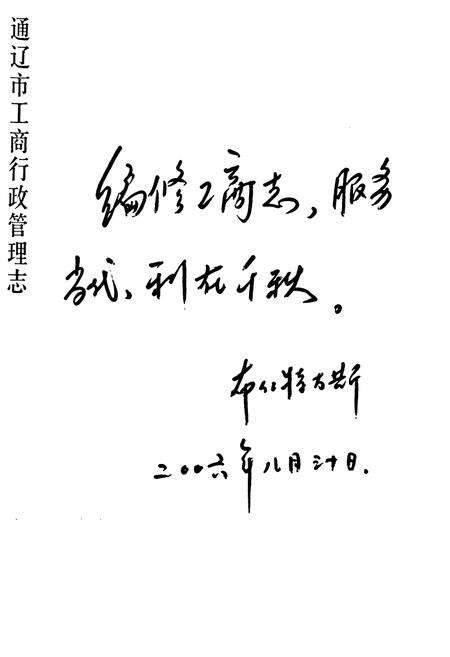 通辽市工商行政管理志
编修工商志，服务
当代、利在千秋。
布仁特古斯
二00六年八月三十日.